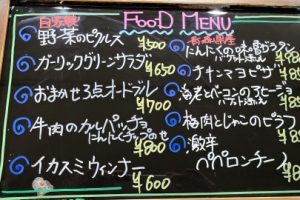 FOOD MENU
自家製!
野菜のピクルス
¥500
ガーリックグリーンサラダ
¥650
おまかせ3点オードブル
¥700
牛肉のカルパッチョ
にんにくチップのせ
¥800
イカスミウィンナー
¥600
バケット添え
チキンマヨピザ
海老とベーコンのアヒージョ
バケット添え
梅肉とじゃこのピラフ
激辛
ペペロンチーノ